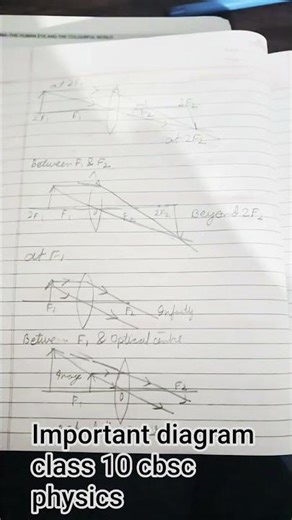 THE HUMAN EYE AND THE COLOURFUL WORLD
at 2F1
2F1 F1 F2 2F2
at 2F2
Between F1 & F2
2F1 F1 F2 2F2 Beyond 2F2
at F1
F2 Infinity
Between F1 & Optical centre
Image
F1 O F2
Important diagram
class 10 cbsc
physics